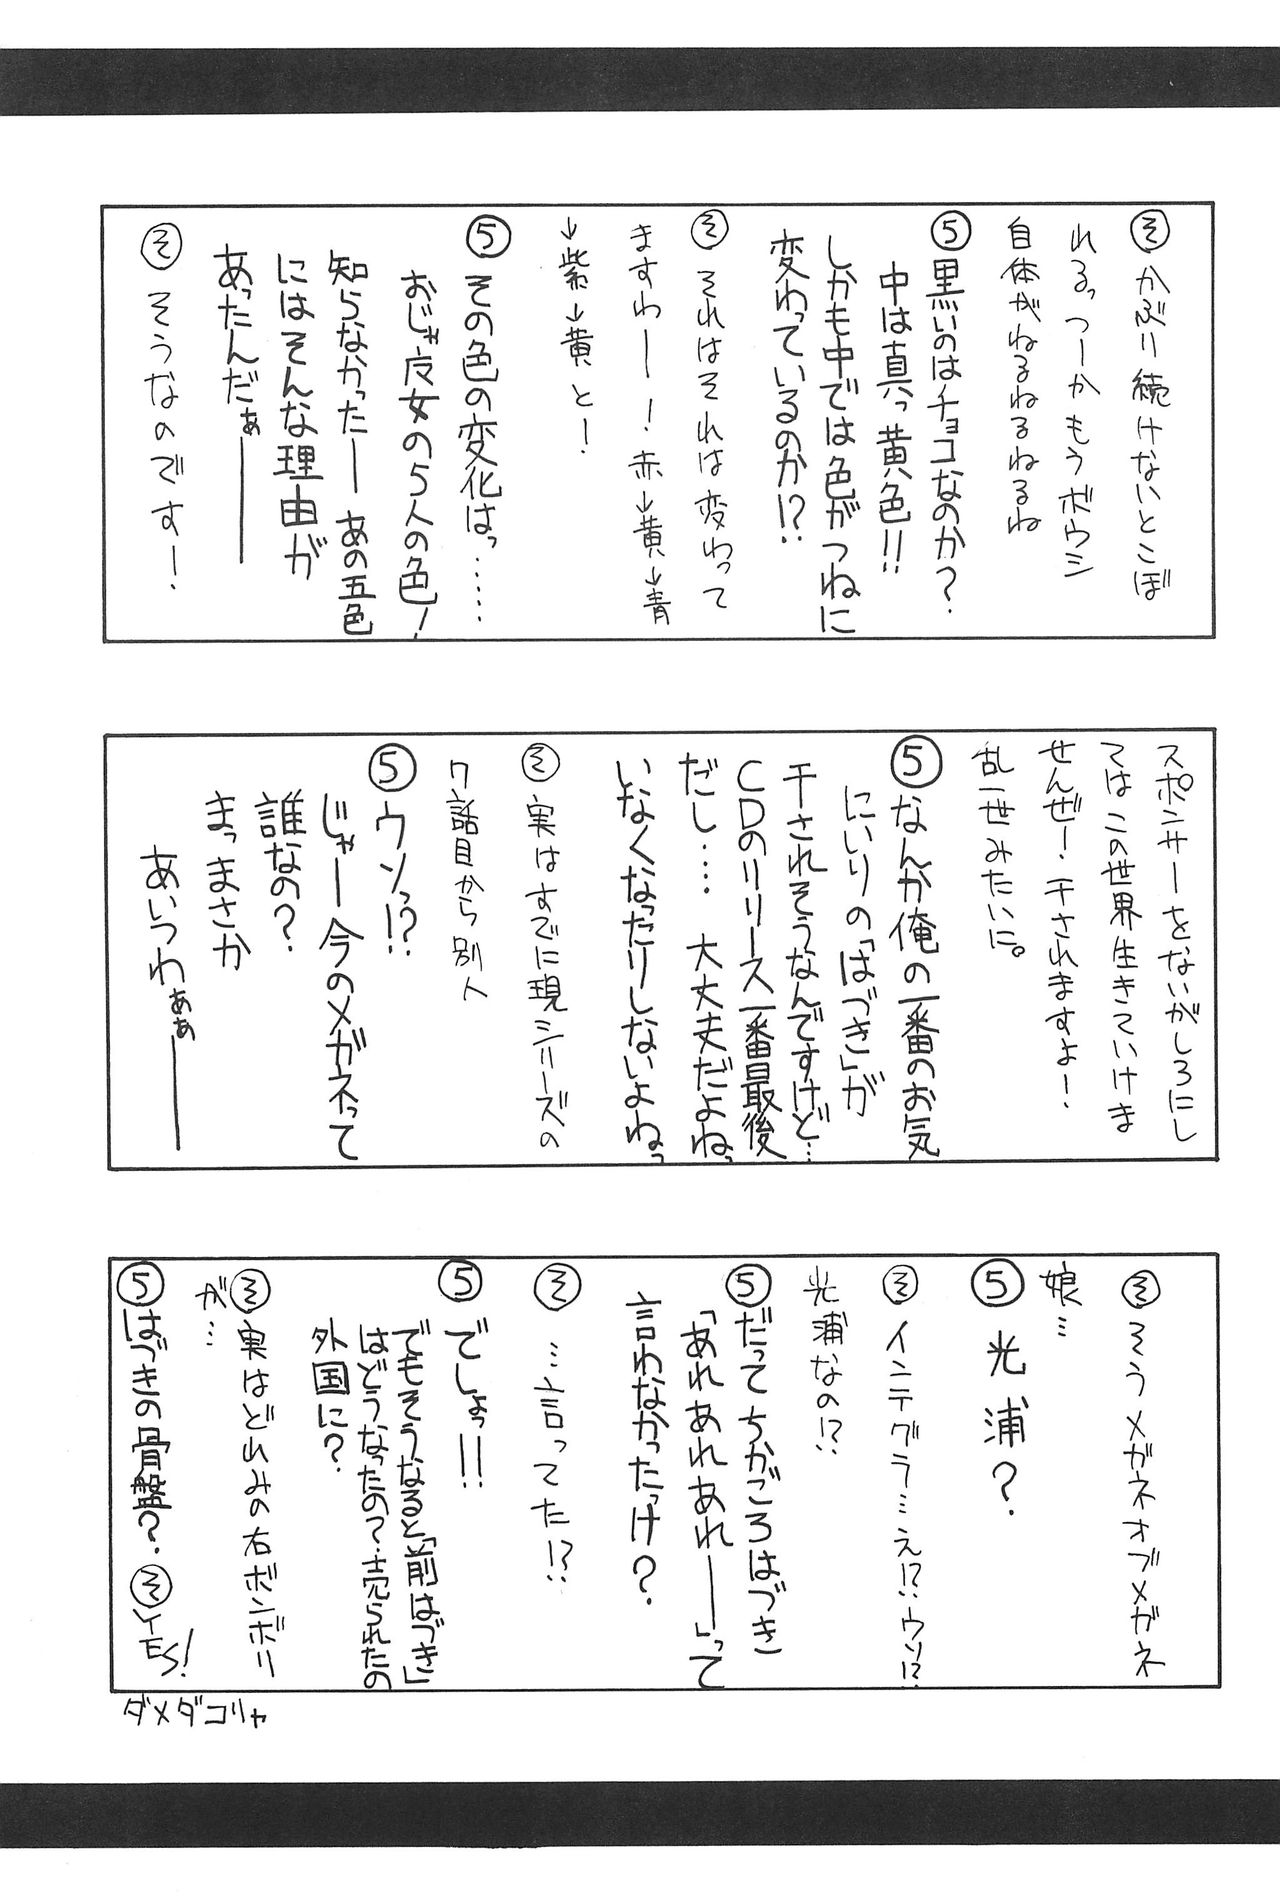 ㋞かぶり続けないとこぼ
れるっつーかもうボウシ
自体がねるねるねるね
⑤黒いのはチョコなのか?
中は真っ黄色!!
しかも中では色がつねに
変わっているのか!?
㋞それはそれは変わって
ますわー!赤→黄→青
→紫→黄と!
⑤その色の変化はっ……
おじゃ魔女の5人の色!
知らなかったー あの五色
にはそんな理由が
あったんだぁーーー
㋞そうなのです!
スポンサーをないがしろにし
てはこの世界生きていけま
せんぜー・干されますよー!
乱一世みたいに。
⑤なんか俺の一番のお気
にいりの「はづき」が
干されそうなんですけど…
CDのリリース一番最後
だし… 大丈夫だよねっ
いなくなったりしないよねっ
㋞実はすでに現シリーズの
7話目から別人
⑤ウソっ!?
じゃー今のメガネって
誰なの?
まっまさか
あいつわぁぁーーー
㋞そうメガネオブメガネ
娘…
⑤光浦?
㋞インテグラ…え!?ウソ!?
光浦なの!?
⑤だってちかごろはづき
「あれあれあれー」って
言わなかったっけ?
㋞…言ってた!?
⑤でしょっ!!
でもそうなると「前はづき」
はどうなったの?売られたの
外国に?
㋞実はどれみの右ボンボリ
が…
⑤はづきの骨盤? ㋞YES!
ダメダコリャ